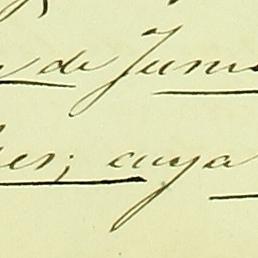 de Juni
es; cuya